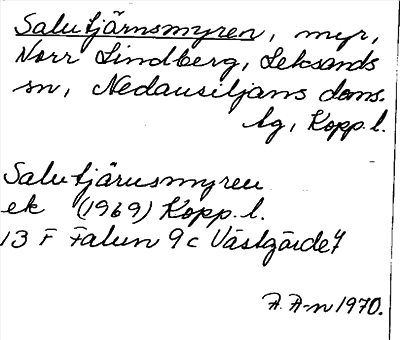 Salutjärnsmyren, myr,
Norr Lindberg, Leksands
sn, Nedansiljans doms.
hg, Kopp. l.
Salutjärnsmyren
ek (1969) Kopp. l.
13 F Falun 9 c Västgärde
A. A-n 1970.